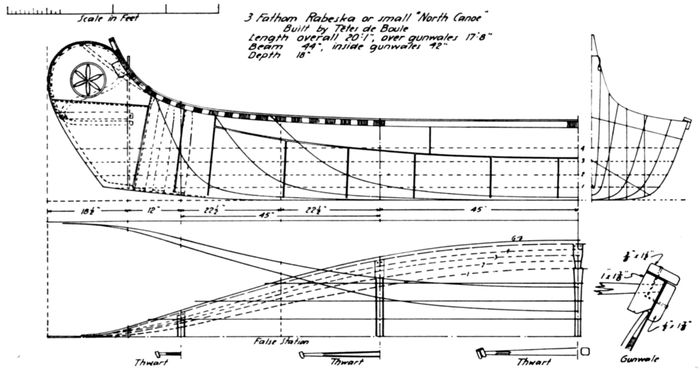 Scale in Feet
3 Fathom Rabeska or small "North Canoe"
Built by Têtes de Boule
Length overall 20'1", over gunwales 17'8"
Beam 44", inside gunwales 42"
Depth 18"
4
3
2
1
18½" 12" 22½" 22½" 45"
45"
False Station
Thwart
Thwart
Thwart
Gunwale